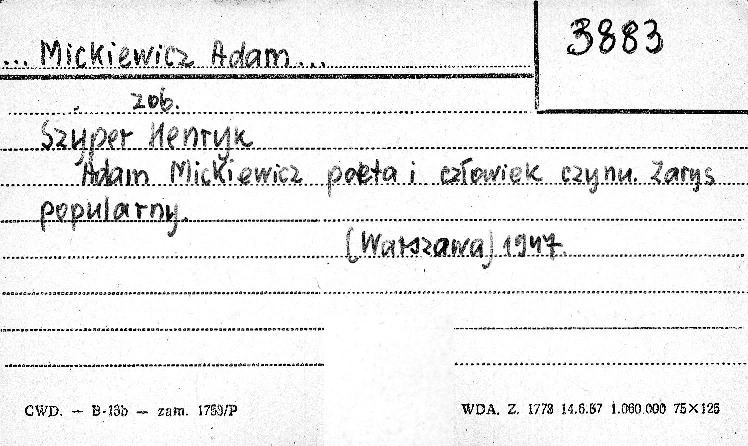 ... Mickiewicz Adam...
3883
zob.
Szyper Henryk
Adam Mickiewicz poeta i człowiek czynu. Zarys
popularny.
(Warszawa) 1947.
CWD. — B-13b — zam. 1753/P
WDA. Z. 1773 14.6.57 1.060.000 75×125